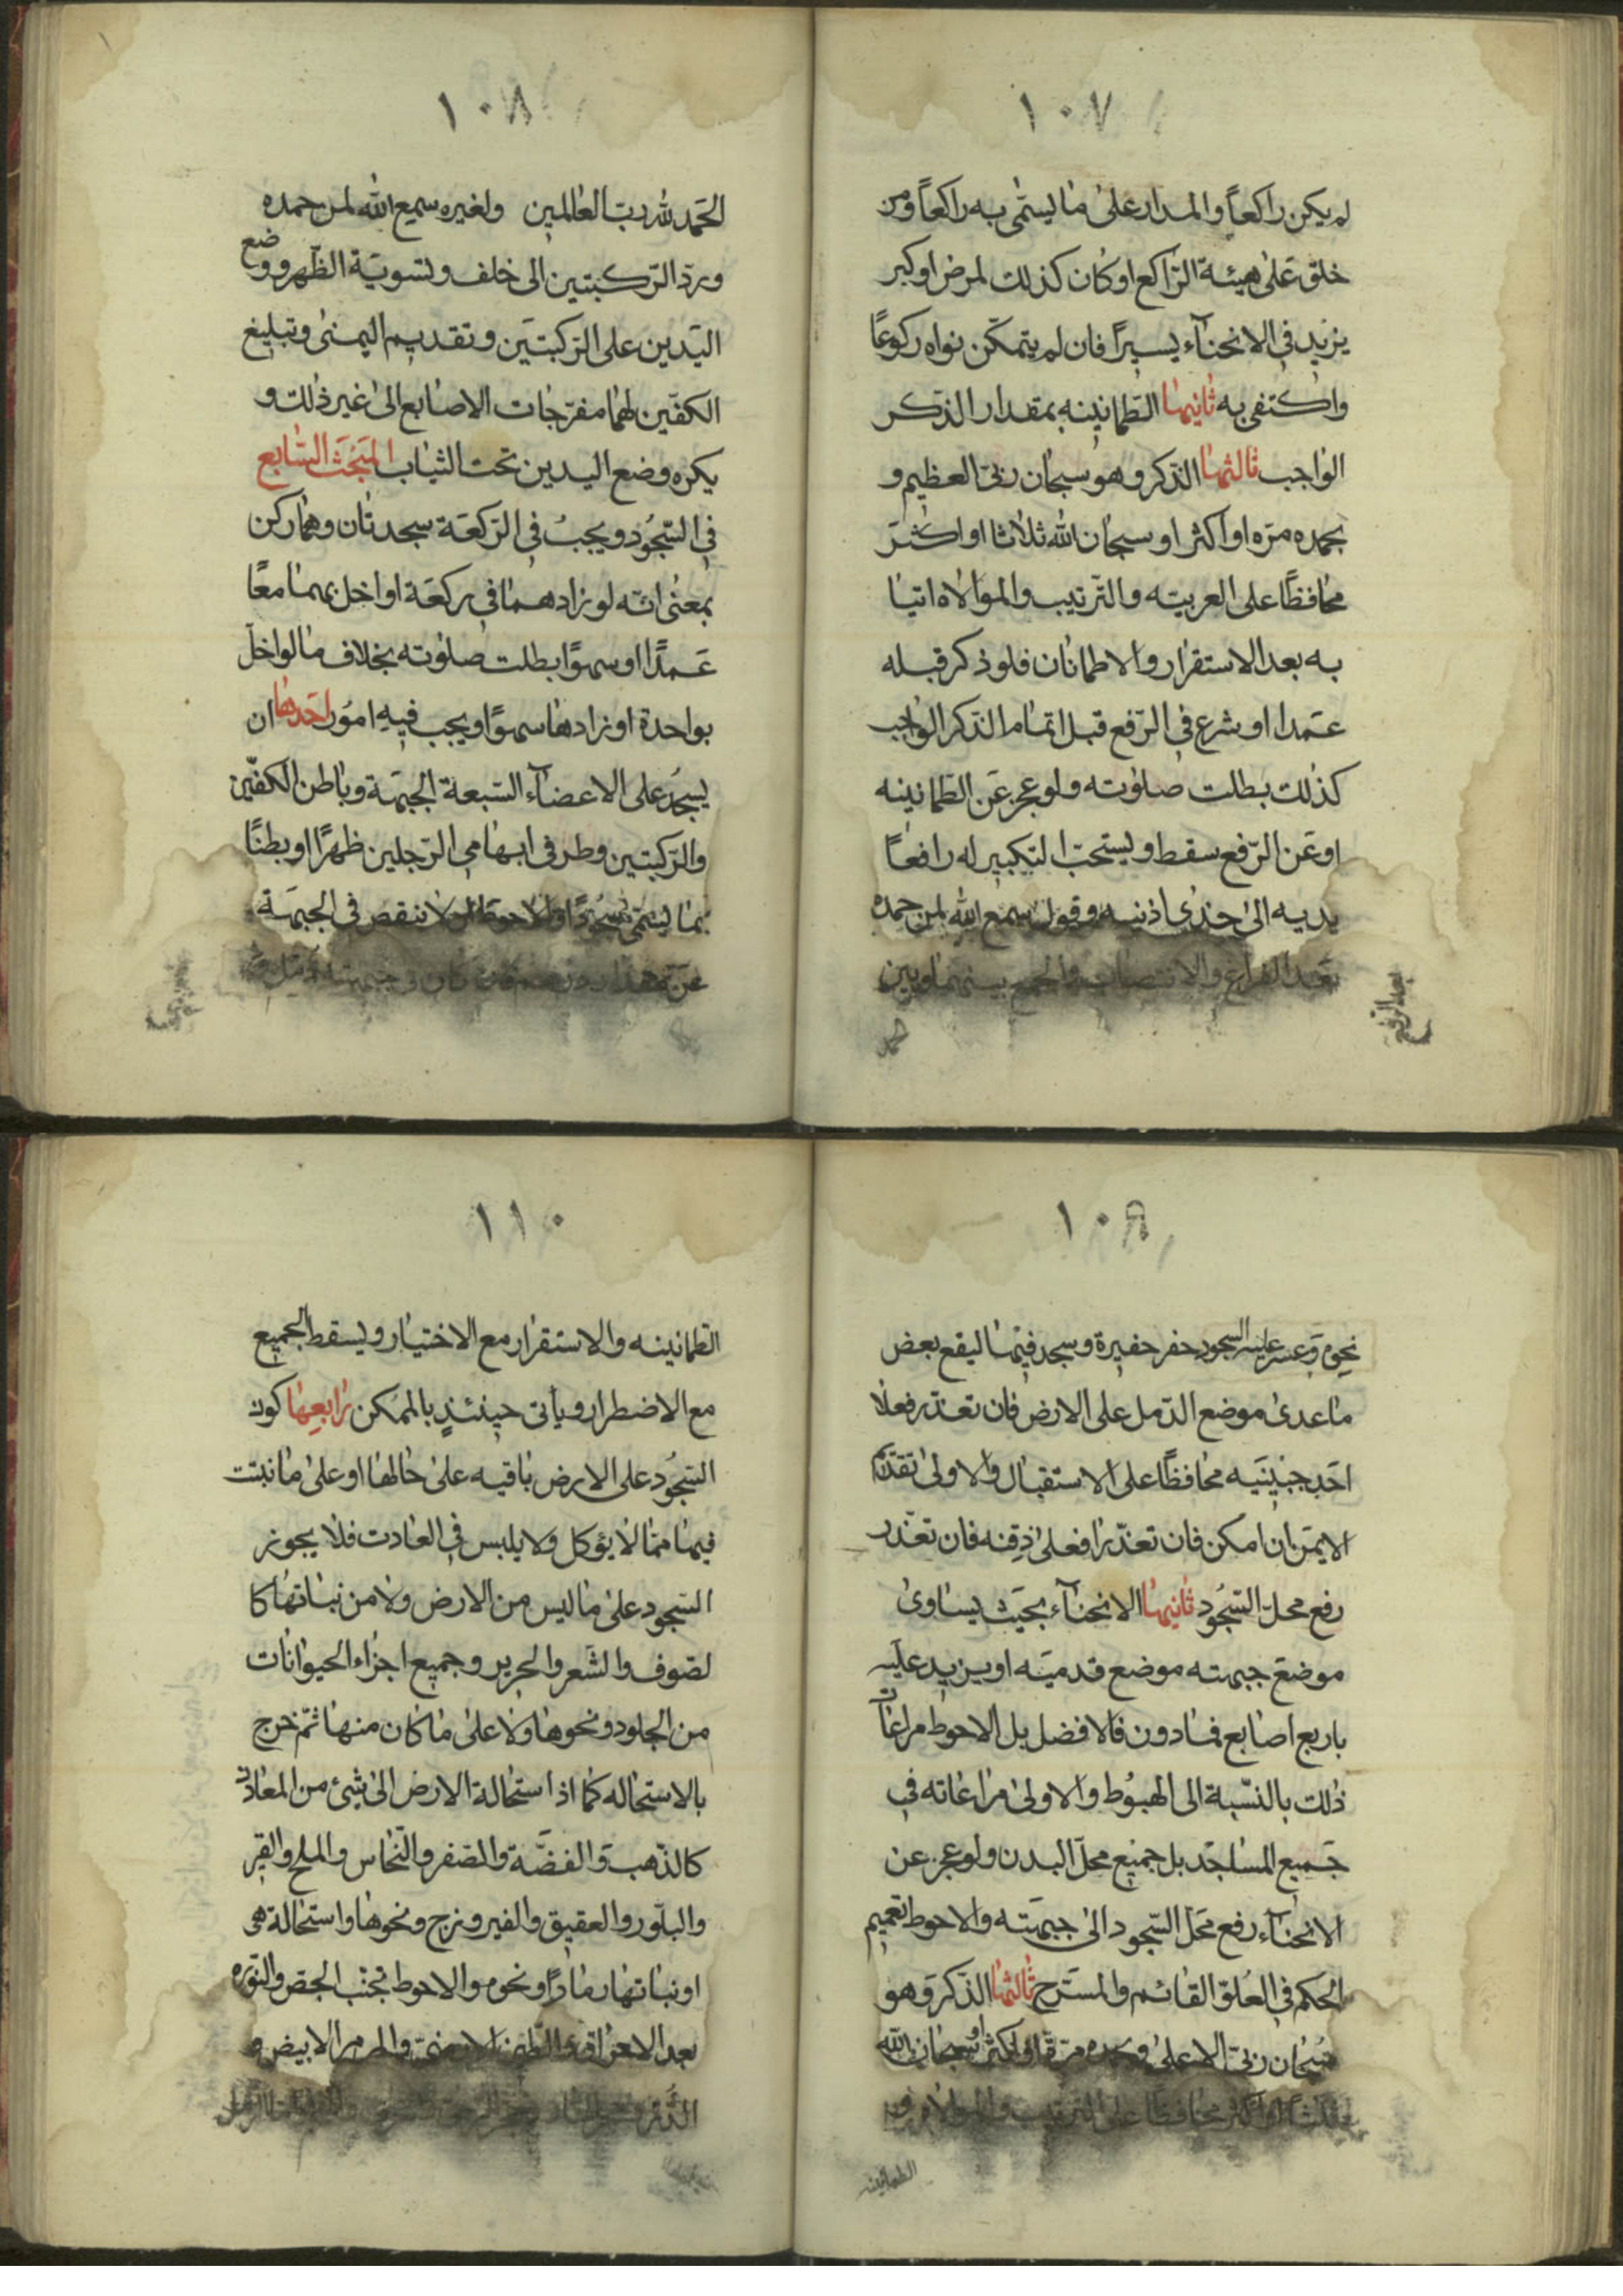 ١٠٧
لم يكن راكعاً والمدار على ما يسمّى به راكعاً ومن
خلق على هيئة الرّاكع او كان كذلك لمرض او كبر
يزيد في الانحنآء يسيراً فان لم يتمكّن نواه ركوعًا
واكتفى به ثانيها الطمانينه بمقدار الذكر
الواجب ثالثها الذكر وهو سبحان ربّى العظيم و
بحمده مرّه او اكثر او سبحان الله ثلاثا او اكثر
محافظًا على العربيّه والتّرتيب والموالاه اتيا
به بعد الاستقرار والاطمانان فلو ذكر قبله
عمدا او شرع في الرّفع قبل اتمام الذكر الواجب
كذلك بطلت صلوته ولو عجز عن الطمانينه
او عن الرّفع سقط ويستحبّ التكبير له رافعاً
يديه الى حذى اذنيه وقول سمع الله لمن حمده
بعد الفراغ والانتصاب والجمع بينهما وبين
بعد الرفع
١٠٨
الحمد لله ربّ العالمين ولغيره سميع الله لمن حمده
وردّ الرّكبتين الى خلف ولتسويّة الظّهر ووضع
اليّدين على الرّكبتين وتقديم اليمنى وتبليغ
الكفّين لهما مفرّجات الاصابع الى غير ذلك و
يكره وضع اليدين تحت الثياب المبحث السّابع
في السّجود ويجب في الرّكعة سجدتان وهما ركن
بمعنى انّه لو زادهما في ركعة او اخلّ بهما معًا
عمدًا او سهوًا بطلت صلوته بخلاف ما لو اخلّ
بواحدة او زادها سهوًا ويجب فيه امور احدها ان
يسجد على الاعضآء السّبعة الجبهة وباطن الكفّين
والرّكبتين وطرفى ابهامى الرّجلين ظهرًا او بطنًا
بما يسمّى سجودًا والاحوط ان لا تنقص في الجبهة
عن
١٠٩
نحوه وعسر عليه السجود حفر حفيرة وسجد فيها ليقع بعض
ما عدى موضع الدّمل على الارض فان تعذّر فعلا
احد جبينيه محافظًا على الاستقبال والاولى تقدّم
الايمن ان امكن فان تعذّرا فعلى ذقنه فان تعذّر
رفع محلّ السّجود ثانيها الانحنآء بحيث يساوى
موضع جبهته موضع قدميه او يزيد عليه
باربع اصابع فمادون فالافضل بل الاحوط مراعات
ذلك بالنّسبة الى الهبوط والاولى مراعاته في
جميع المساجد بل جميع محلّ البدن ولو عجز عن
الانحنآء رفع محلّ السّجود الى جبهته والاحوط تعميم
الحكم في العلوّ القائم والمسترح ثالثها الذكر وهو
سبحان ربّى الاعلى وبحمده مرّة او اكثر او سبحان الله
ثلثا او اكثر محافظًا على الترتيب والموالاة
الطمانينه
١١٠
الطمانينه والاستقرار مع الاختيار ويسقط الجميع
مع الاضطرار ويأتى حينئذٍ بالممكن رابعها كون
السّجود على الارض باقيه على حالها او على ما نبتت
فيها ممّا لا يؤكل ولا يلبس في العادت فلا يجوز
السّجود على ما ليس من الارض ولا من نباتها كا
لصّوف والشّعر والحرير وجميع اجزاء الحيوانات
من الجلود ونحوها ولا على ما كان منها ثمّ خرج
بالاستحاله كما اذا استحالة الارض الى شيئ من المعادن
كالذّهب والفضّة والصّفر والنّحاس والملح والقير
والبلّور والعقيق والفيروزج ونحوها واستحالة هى
او نباتها رمادًا ونحوه والاحوط تجنّب الجصّ والنّوره
بعد الاحراق والطّين الارمنى والمرمر الابيض و